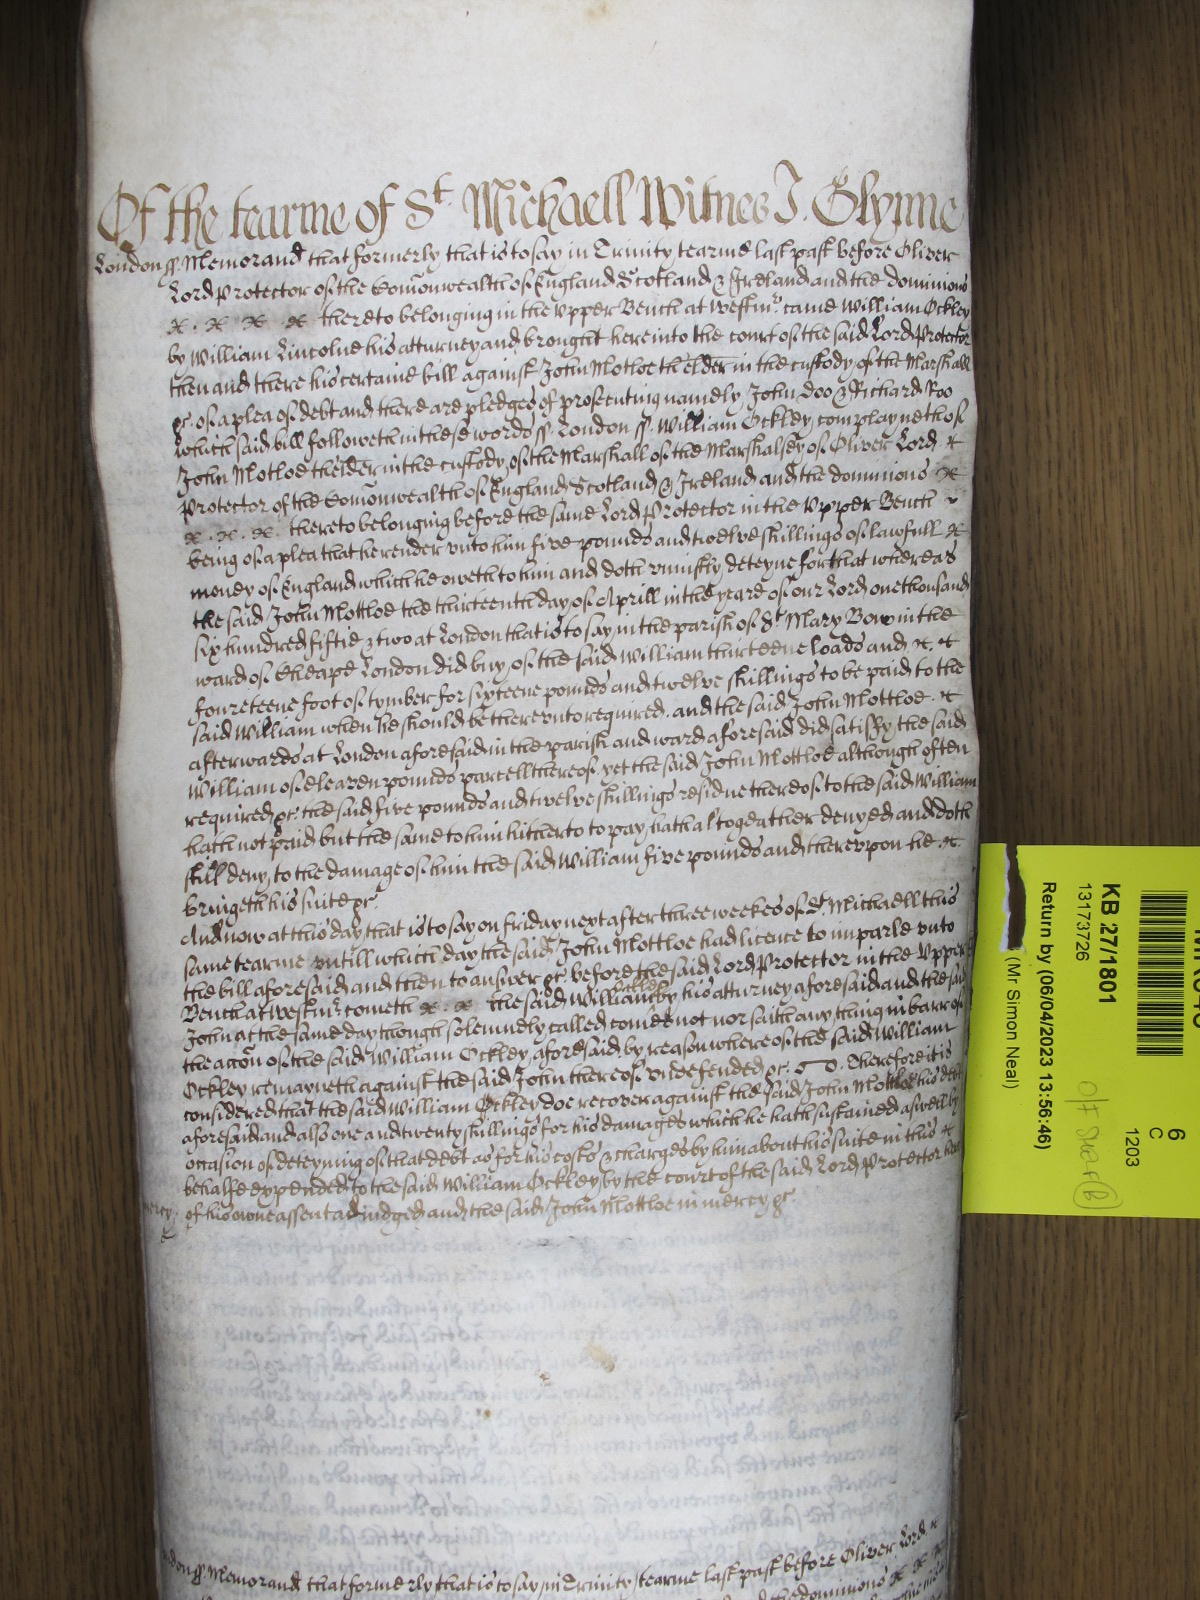 Of the tearme of St Michaell Witnes J. Glynne
London ss. Memorand that formerly that is to say in Trinity tearme last past before Oliver
Lord Protector of the Comonwealth of England Scotland & Ireland and the dominions
thereto belonging in the Upper Bench at Westmr. came William Ockley
by William Lincolne his atturney and brought here into the court of the said Lord Protector
then and there his certaine bill against John Motloe thelder in the custody of the Marshall
&c. of a plea of debt and there are pledges of prosecuting namely John Doo & Richard Roo
which said bill followeth in these words ss. London ss. William Ockley complayneth of
John Motloe thelder in the custody of the Marshall of the Marshalsey of Oliver Lord
Protector of the Comonwealth of England Scotland & Ireland and the dominions
thereto belonging before the same Lord Protector in the Upper Bench
being of a plea that he render unto him five pounds and twelve shillings of lawfull
money of England which he oweth to him and doth uniustly deteyne for that whereas
the said John Mottloe the thirteenth day of Aprill in the yeare of our Lord one thousand
six hundred fiftie & two at London that is to say in the parish of St Mary Bow in the
ward of Cheape London did buy of the said William thirteene loads and
foureteene foot of tymber for sixteene pounds and twelve shillings to be paid to the
said William when he should be thereunto required. and the said John Mottloe
afterwards at London aforesaid in the parish and ward aforesaid did satisfy the said
William of eleaven pounds parcell thereof. yet the said John Mottloe although often
required &c. the said five pounds and twelve shillings residue thereof to the said William
hath not paid but the same to him hitherto to pay hath altogeather denyed and doth
still deny to the damage of him the said William five pounds and thereupon he
bringeth his suite &c.
And now at this day that is to say on friday next after three weekes of St. Michaell this
same tearme untill which day the said John Mottloe had licence to imparle unto
the bill aforesaid and then to answer &c. before the said Lord Protector in the Upper
Bench at Westmr. cometh the said William Ockley by his atturney aforesaid and the said
John at the same day though solemnely called comes not nor saith any thing in barr of
the accon of the said William Ockley aforesaid by reason whereof the said William
Ockley remayneth against the said John thereof undefended &c. Therefore it is
considered that the said William Ockley doe recover against the said John Mottloe his debt
aforesaid and also one and twenty shillings for his damages which he hath sustained aswell by
occasion of deteyning of that debt as for his costs & charges by him about his suite in this
behalfe expended to the said William Ockley by the court of the said Lord Protector here
mercy. of his owne assent adiudged and the said John Mottloe in mercy &c.
London ss. Memorand that formerly that is to say in Trinity tearme last past before Oliver Lord
the dominions
6
C
1203
KB 27/1801
13173726
Return by (06/04/2023 13:56:46)
(Mr Simon Neal)